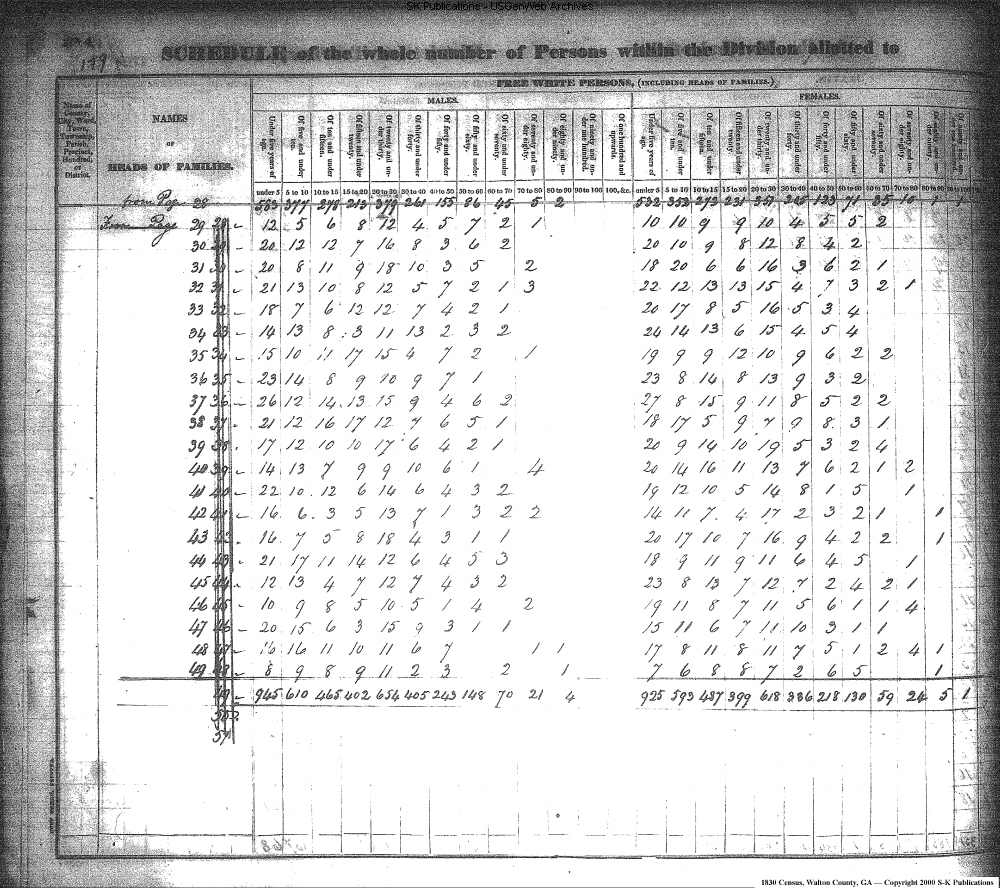 SK Publications - USGenWeb Archives
179
SCHEDULE of the whole number of Persons within the Division allotted to
FREE WHITE PERSONS, (INCLUDING HEADS OF FAMILIES.)
MALES. FEMALES.
Name of County, City, Ward, Town, Township, Parish, Precinct, Hundred, or District.
NAMES
OF
HEADS OF FAMILIES.
Under five years of age. Of five and under ten. Of ten and under fifteen. Of fifteen and under twenty. Of twenty and under thirty. Of thirty and under forty. Of forty and under fifty. Of fifty and under sixty. Of sixty and under seventy. Of seventy and under eighty. Of eighty and under ninety. Of ninety and under one hundred. Of one hundred and upwards.
under 5 5 to 10 10 to 15 15 to 20 20 to 30 30 to 40 40 to 50 50 to 60 60 to 70 70 to 80 80 to 90 90 to 100 100, &c. under 5 5 to 10 10 to 15 15 to 20 20 to 30 30 to 40 40 to 50 50 to 60 60 to 70 70 to 80 80 to 90 90 to 100
from Page 28 553 377 278 213 379 261 155 86 45 5 2 532 353 273 231 357 215 133 71 35 10 1 1
From Page 29 12 5 6 8 12 4 5 7 2 1 10 10 9 9 10 4 5 5 2
30 20 12 12 7 16 8 3 6 2 20 10 9 8 12 8 4 2
31 20 8 11 9 18 10 3 5 2 18 20 6 6 16 3 6 2 1
32 21 13 10 8 12 5 7 2 1 3 22 12 13 13 15 4 7 3 2 1
33 18 7 6 12 12 7 4 2 1 20 17 8 5 16 5 3 4
34 14 13 8 3 11 13 2 3 2 24 14 13 6 15 4 5 4
35 15 10 11 17 15 4 7 2 1 19 9 9 12 10 9 6 2 2
36 23 14 8 9 10 9 7 1 23 8 14 8 13 9 3 2
37 26 12 14 13 15 9 4 6 2 27 8 15 9 11 8 5 2 2
38 21 12 16 17 12 7 6 5 1 18 17 5 9 7 9 8 3 1
39 17 12 10 10 17 6 4 2 1 20 9 14 10 19 5 3 2 4
40 14 13 7 9 9 10 6 1 4 20 14 16 11 13 7 6 2 1 2
41 22 10 12 6 14 6 4 3 2 19 12 10 5 14 8 1 5 1
42 16 6 3 5 13 7 1 3 2 2 14 11 7 4 17 2 3 2 1 1
43 16 7 5 8 18 4 3 1 1 20 17 10 7 16 9 4 2 2 1
44 21 17 11 14 12 6 4 5 3 18 9 11 9 11 6 4 5 1
45 12 13 4 7 12 7 4 3 2 23 8 13 7 12 7 2 4 2 1
46 10 9 8 5 10 5 1 4 2 19 11 8 7 11 5 6 1 1 4
47 20 15 6 3 15 9 3 1 1 15 11 6 7 11 10 3 1 1
48 16 16 11 10 11 6 7 1 1 17 8 11 8 11 7 5 1 2 4 1
49 8 9 8 9 11 2 3 2 1 7 6 8 8 7 2 6 5 1
49 945 610 465 402 654 405 243 148 70 21 4 925 593 487 399 618 336 218 130 59 24 5 1
1830 Census, Walton County, GA — Copyright 2000 S-K Publications